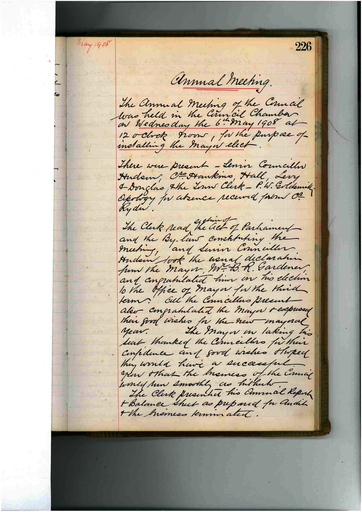 May 1908
226
Annual Meeting.
The Annual Meeting of the Council
was held in the Council Chamber
on Wednesday the 6th May 1908 at
12 o'clock Noon, for the purpose of
installing the Mayor elect.
There were present - Senior Councillor
Hudson, Crs Hawkins, Hall, Levy
& Douglas, & the Town Clerk - P. W.
Apology for absence received from Cr
Ryder.
The Clerk read section of the Act of Parliament
and the By-law constituting the
Meeting, and Senior Councillor
Hudson took the usual declaration
from the Mayor, Mr B. R. Gardener,
and congratulated him on his election
to the Office of Mayor for the third
term. All the Councillors present
also congratulated the Mayor & expressed
their good wishes for the new mayoral
year. The Mayor on taking his
seat thanked the Councillors for their
confidence and good wishes & hoped
they would have a successful
year & that the business of the Council
would run smoothly as hitherto.
The Clerk presented his Annual Report
& Balance Sheet as prepared for Audit
& the business terminated.